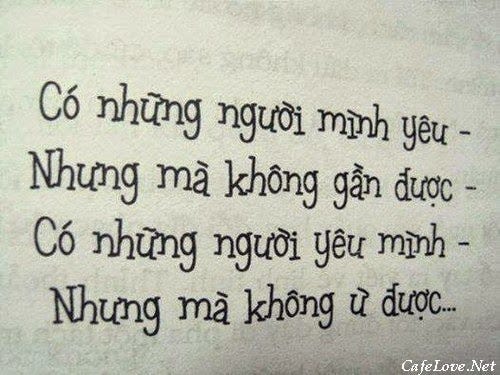 Có những người mình yêu -
Nhưng mà không gần được -
Có những người yêu mình -
Nhưng mà không ừ được...
CafeLove.Net